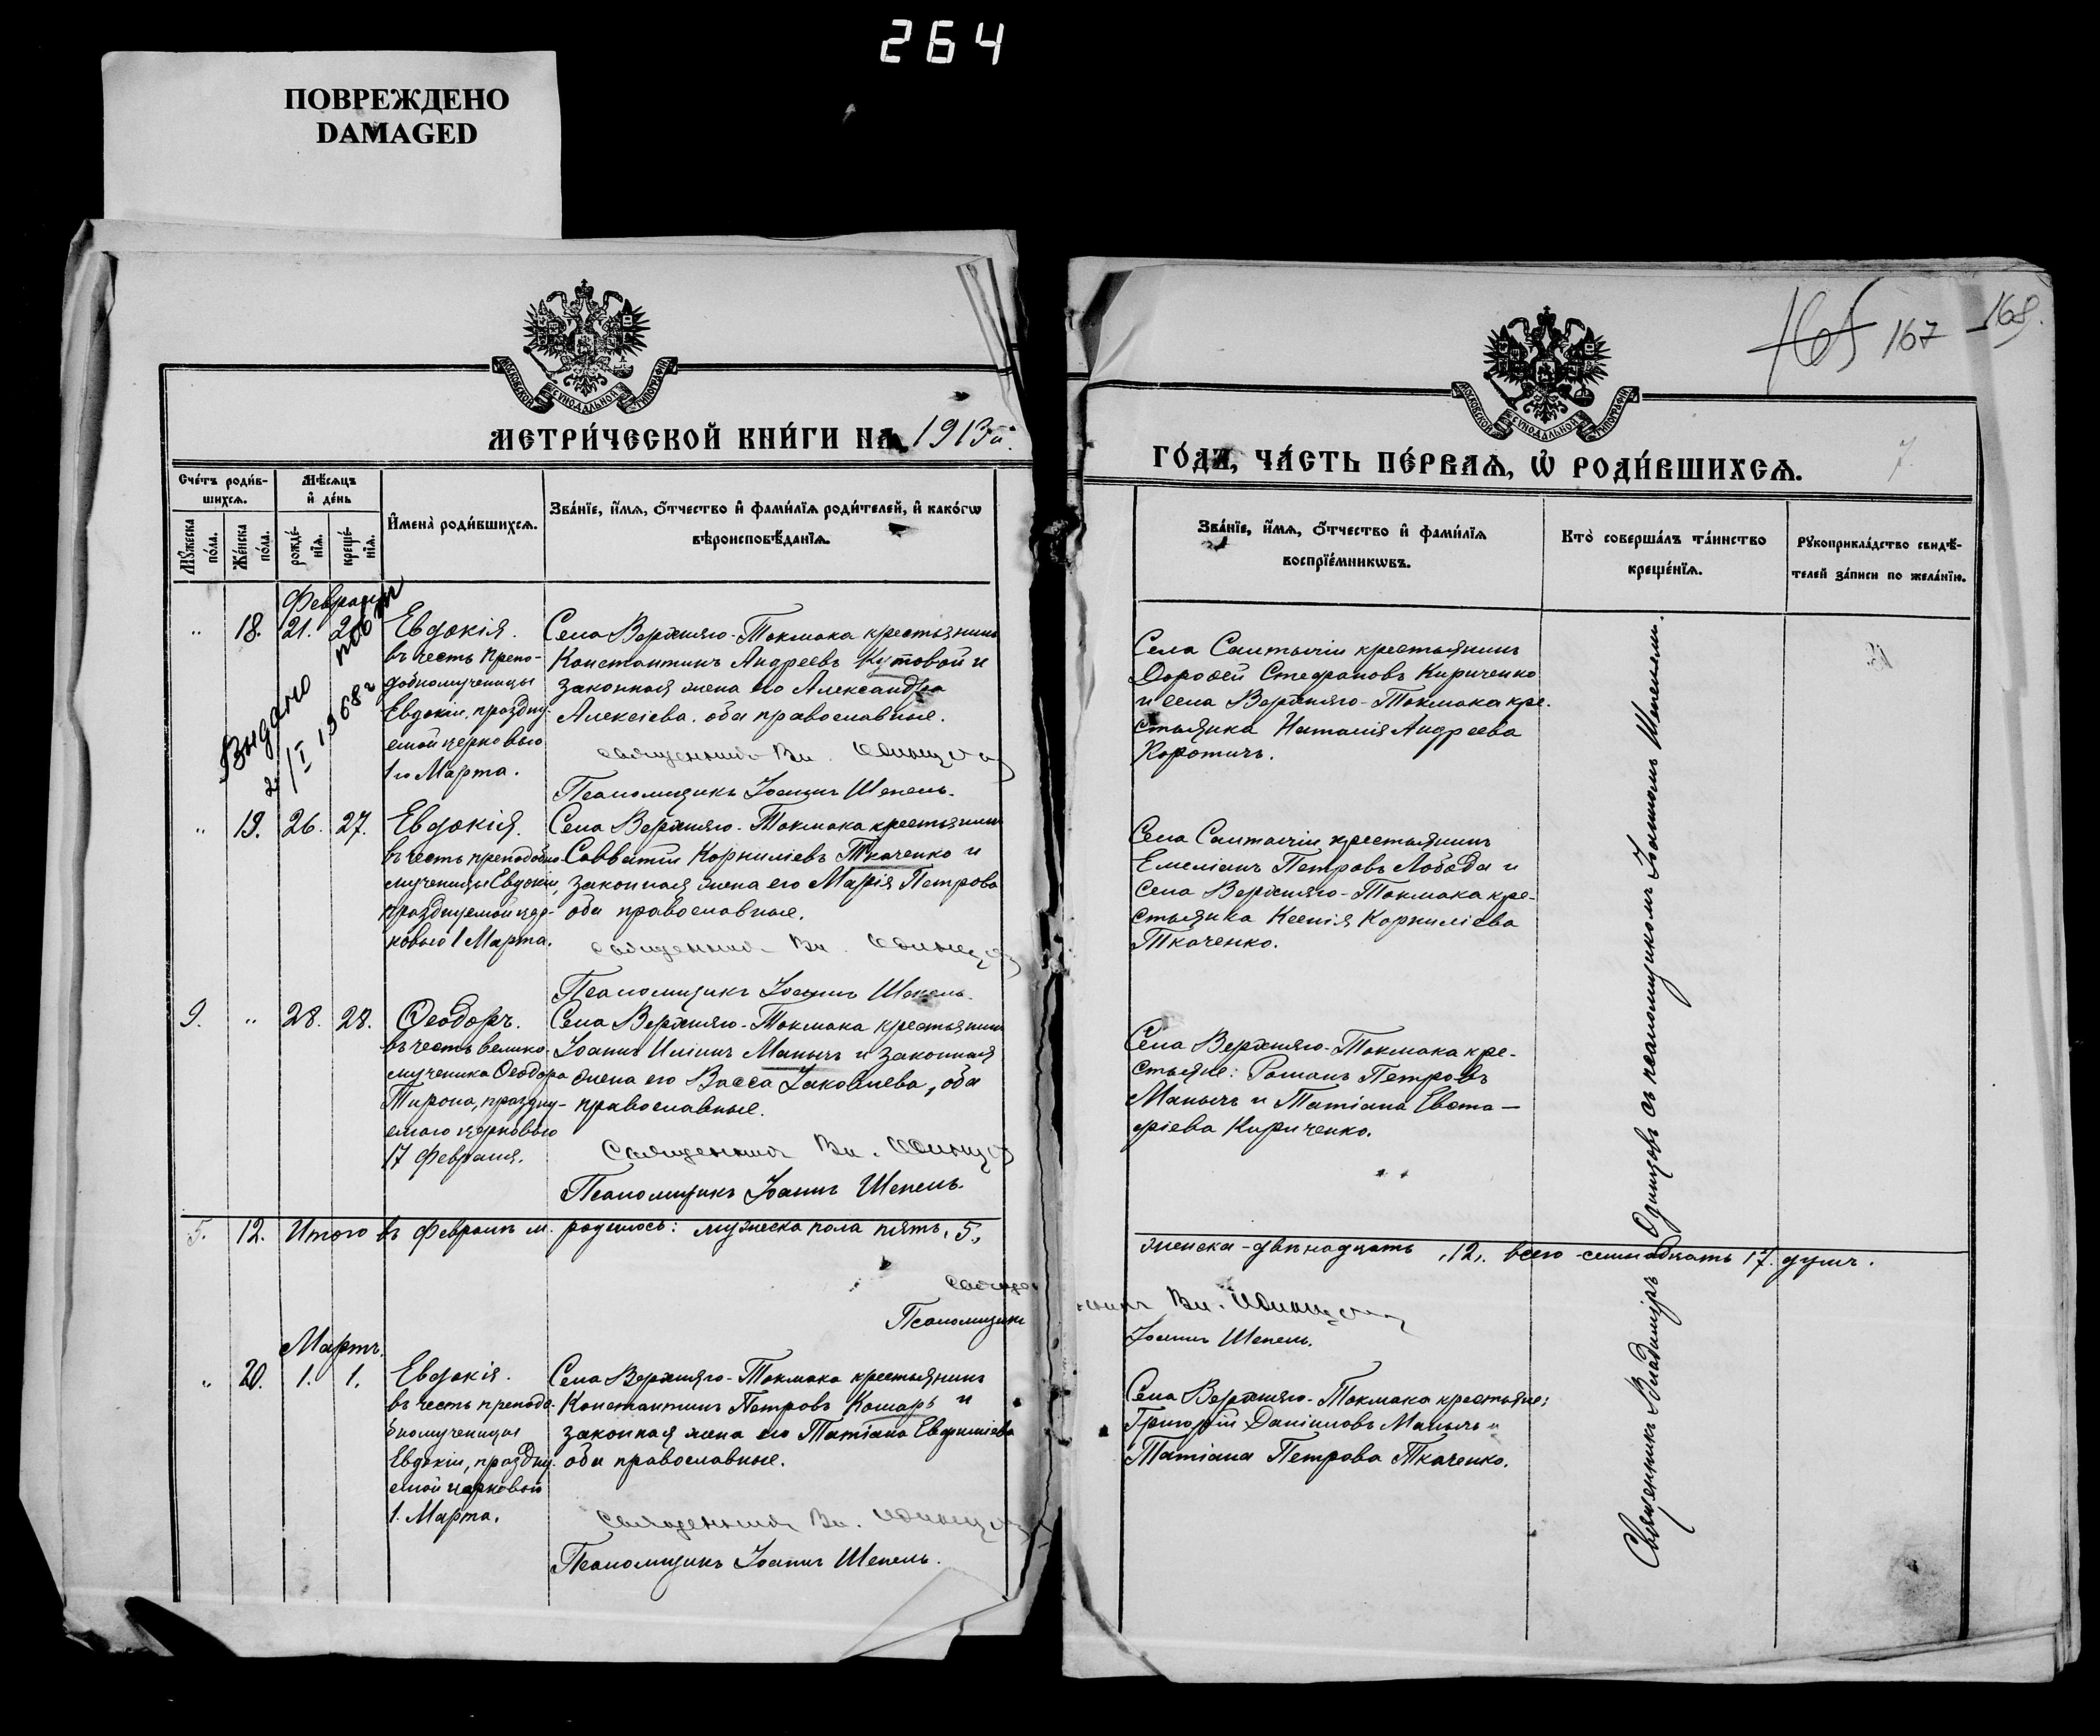 264
ПОВРЕЖДЕНО
DAMAGED
МОСКОВСКОЙ СѴНОДАЛЬНОЙ ТИПОГРАФІИ
МЕТРИ́ЧЕСКОЙ КНИ́ГИ НА 1913й
Сче́тъ роди́в-
шихсѧ.
Мѣ́сѧцъ
и҆ де́нь
Мꙋ́жеска
по́ла.
Же́нска
по́ла.
рожде́-
нїѧ.
креще́-
нїѧ.
И҆мена̀ роди́вшихсѧ.
Зва́нїе, и҆́мѧ, ѻ҆́тчество и҆ фами́лїѧ роди́телей, и҆ како́гѡ
вѣроисповѣ́данїѧ.
Февраль
„ 18. 21.
Евдокія.
въ честь препо-
добномученицы
Евдокіи, праздну-
емой церковью
1го Марта.
Села Верхняго-Токмака крестьянинъ
Константинъ Андреевъ Кутовой и
законная жена его Александра
Алексіева. оба православные.
Священникъ Вл. Одинцовъ
Псаломщикъ Іоаннъ Шепель.
Выдано
2/I 1968 г
„ 19. 26. 27.
Евдокія.
въ честь преподобно-
мученицы Евдокіи,
празднуемой цер-
ковью 1 Марта.
Села Верхняго-Токмака крестьянинъ
Савватій Корниліевъ Ткаченко и
законная жена его Марія Петрова
оба православные.
Священникъ Вл. Одинцовъ
Псаломщикъ Іоаннъ Шепель.
9. „ 28. 28.
Ѳеодоръ.
въ честь велико-
мученика Ѳеодора
Тирона, праздну-
емаго церковью
17 Февраля.
Села Верхняго-Токмака крестьянинъ
Іоаннъ Иліинъ Манычъ и законная
жена его Васса Іаковлева, оба
православные.
Священникъ Вл. Одинцовъ
Псаломщикъ Іоаннъ Шепель.
5. 12. Итого въ Февралѣ м. родилось: мужеска пола пять, 5,
Псаломщикъ
Мартъ.
„ 20. 1. 1.
Евдокія.
въ честь преподо-
бномученицы
Евдокіи, праздну-
емой церковью
1. Марта.
Села Верхняго-Токмака крестьянинъ
Константинъ Петровъ Комаръ и
законная жена его Татіана Евфиміева
оба православные.
Священникъ Вл. Одинцовъ
Псаломщикъ Іоаннъ Шепель.
165 167 168.
МОСКОВСКОЙ СѴНОДАЛЬНОЙ ТИПОГРАФІИ
ГО́ДА, ЧА́СТЬ ПЕ́РВАѦ, Ѡ҆ РОДИ́ВШИХСѦ.
7.
Зва́нїе, и҆́мѧ, ѻ҆́тчество и҆ фами́лїѧ
воспрїе́мникѡвъ.
Кто̀ соверша́лъ та́инство
креще́нїѧ.
Рꙋкоприкла́дство свидѣ́-
телей за́писи по жела́нїю.
Села Салтычіи крестьянинъ
Дороѳей Стефановъ Кириченко
и села Верхняго-Токмака кре-
стьянка Наталія Андреева
Коротичъ.
Села Салтычіи крестьянинъ
Емеліанъ Петровъ Лобода и
села Верхняго-Токмака кре-
стьянка Ксенія Корниліева
Ткаченко.
Села Верхняго-Токмака кре-
стьяне: Романъ Петровъ
Манычъ и Татіана Евста-
фіева Кириченко.
женска-двѣнадцать, 12, всего-семнадцать 17 душъ.
Вл. Одинцовъ
Іоаннъ Шепель.
Села Верхняго-Токмака крестьяне:
Григорій Даніиловъ Манычъ и
Татіана Петрова Ткаченко.
Священникъ Владиміръ Одинцовъ съ псаломщикомъ Іоанномъ Шепелемъ.